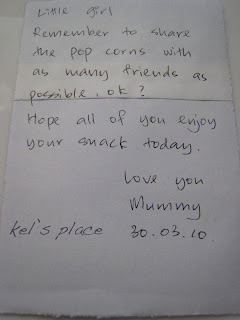 Little girl
Remember to share
the pop corns with
as many friends as
possible, ok?
Hope all of you enjoy
your snack today.
Love you
Mummy
kel's place 30.03.10